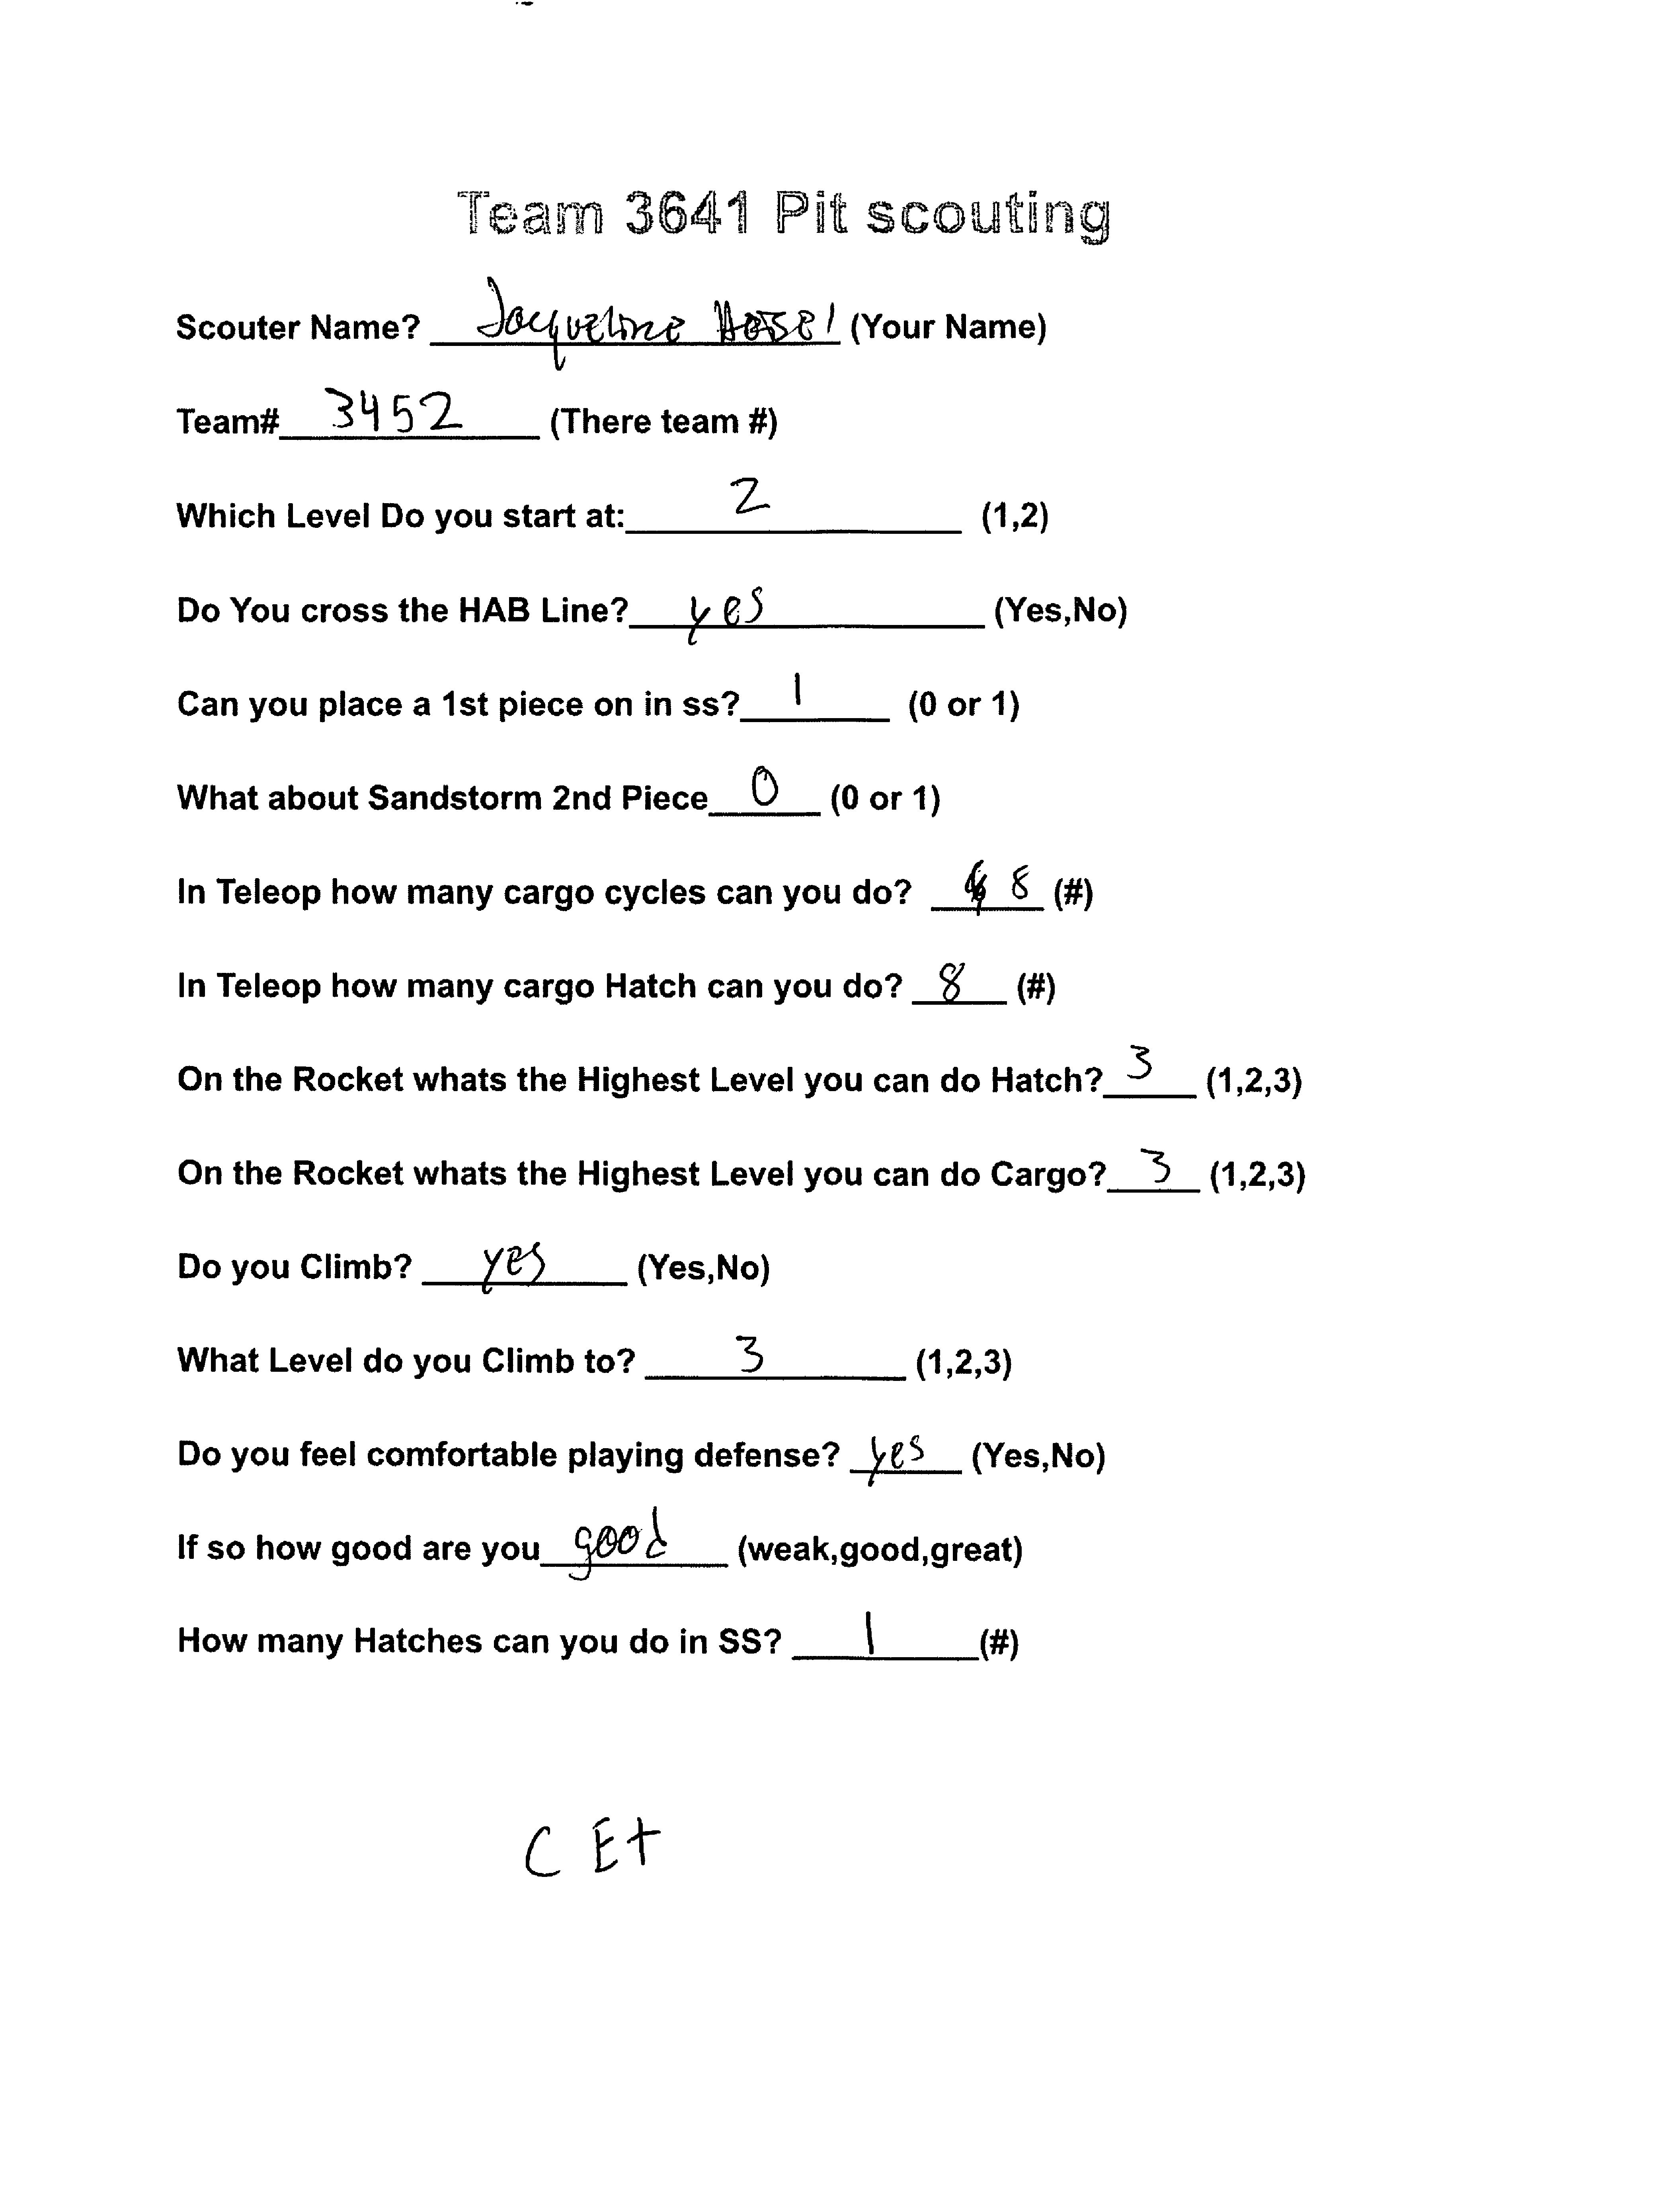 Team 3641 Pit scouting
Scouter Name? Jacqueline (Your Name)
Team# 3452 (There team #)
Which Level Do you start at: 2 (1,2)
Do You cross the HAB Line? yes (Yes,No)
Can you place a 1st piece on in ss? 1 (0 or 1)
What about Sandstorm 2nd Piece 0 (0 or 1)
In Teleop how many cargo cycles can you do? 8 (#)
In Teleop how many cargo Hatch can you do? 8 (#)
On the Rocket whats the Highest Level you can do Hatch? 3 (1,2,3)
On the Rocket whats the Highest Level you can do Cargo? 3 (1,2,3)
Do you Climb? yes (Yes,No)
What Level do you Climb to? 3 (1,2,3)
Do you feel comfortable playing defense? yes (Yes,No)
If so how good are you good (weak,good,great)
How many Hatches can you do in SS? 1 (#)
C E+